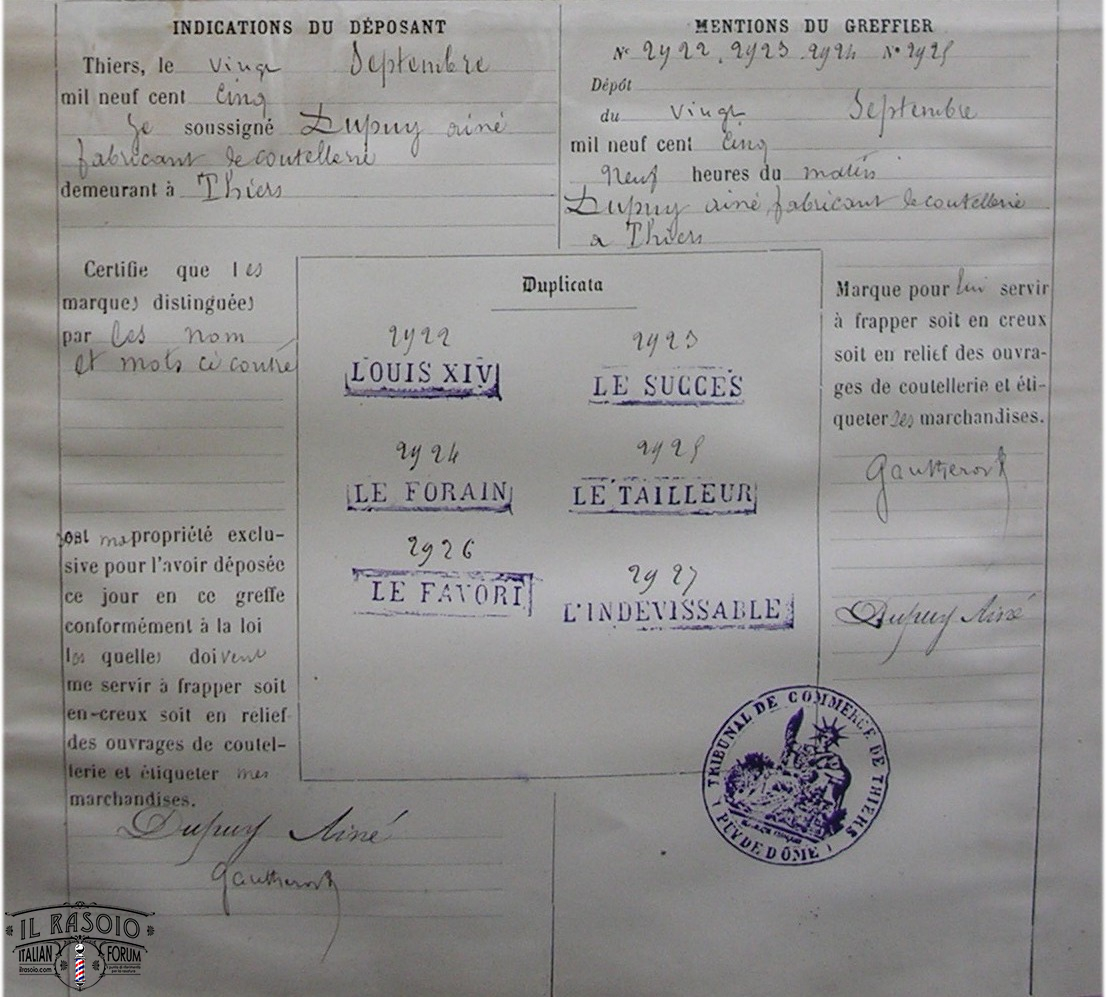 INDICATIONS DU DÉPOSANT
Thiers, le vingt Septembre
mil neuf cent Cinq
Je soussigné Dupuy ainé
fabricant de coutellerie
demeurant à Thiers
MENTIONS DU GREFFIER
Nº 2922, 2923 2924 Nº 2925
Dépôt
du vingt Septembre
mil neuf cent Cinq
Neuf heures du matin
Dupuy ainé, fabricant de coutellerie
a Thiers
Certifie que les
marques distinguées
par les nom
et mots ci contre
est ma propriété exclu-
sive pour l'avoir déposée
ce jour en ce greffe
conformément à la loi
les quelles doivent
me servir à frapper soit
en-creux soit en relief
des ouvrages de coutel-
lerie et étiqueter mes
marchandises.
Dupuy Ainé
Gautheront
Duplicata
2922 2923
LOUIS XIV LE SUCCES
2924 2925
LE FORAIN LE TAILLEUR
2926 2927
LE FAVORI L'INDEVISSABLE
Marque pour lui servir
à frapper soit en creux
soit en relief des ouvra-
ges de coutellerie et éti-
queter ses marchandises.
Gautheront
Dupuy Ainé
TRIBUNAL DE COMMERCE DE THIERS
PUY DE DÔME
IL RASOIO
ITALIAN FORUM
ilrasoio.com